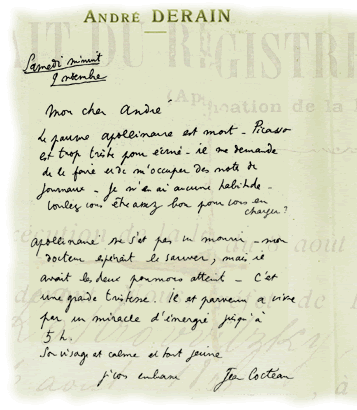 ANDRÉ DERAIN
AIT DU REGISTRE
Samedi minuit
9 novembre
Mon cher André
Le pauvre Apollinaire est mort - Picasso
est trop triste pour écrire - il me demande
de le faire et de m'occuper des notes de
journaux - Je n'en ai aucune habitude -
voulez vous être assez bon pour vous en
charger?
Apollinaire ne s'est pas vu mourir - mon
docteur espérait le sauver, mais il
avait les deux poumons atteint - C'est
une grande tristesse. Il est parvenu a vivre
par un miracle d'énergie jusqu'à
5 h.
Son visage est calme et tout jeune
je vous embrasse Jean Cocteau